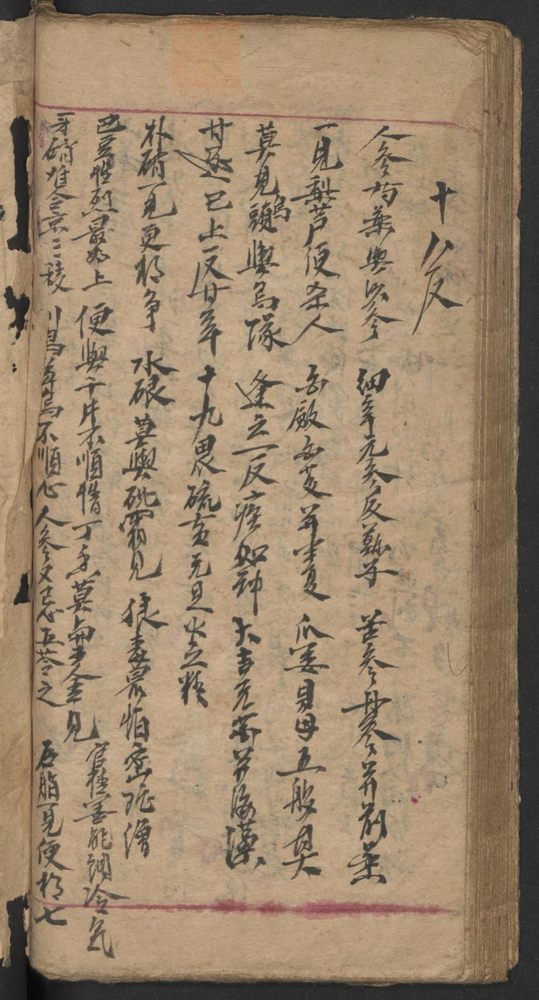 十八反
人参芍藥與沙参 細辛元参及紫参 苦参丹参并前藥
一見藜芦便杀人 白蔹白芨并半夏 瓜蒌貝母五般真
莫見烏頭與烏喙 逢之一反疾如神 大吉芫花并海藻
甘遂已上反甘草 十九畏 硫黄元是火之精
朴硝一見更相争 水银莫與砒霜見 狼毒最怕密陀僧
巴豆性烈最為上 便與千牛不順情 丁香莫與金見 官桂善能調冷气
牙硝难合京三棱 川烏草烏不順 人参又忌五苓之 石脂見便相